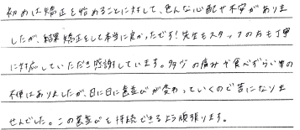 初めは矯正を始めることに対して、色んな心配や不安がありま
したが、結果矯正をして本当に良かったです！先生もスタッフの方も丁寧
に対応していただき感謝しています。多少の痛みや食べずらい等の
不便はありましたが、日に日に歯並びが変わっていくので苦になりま
せんでした。この歯並びを持続できるよう頑張ります。